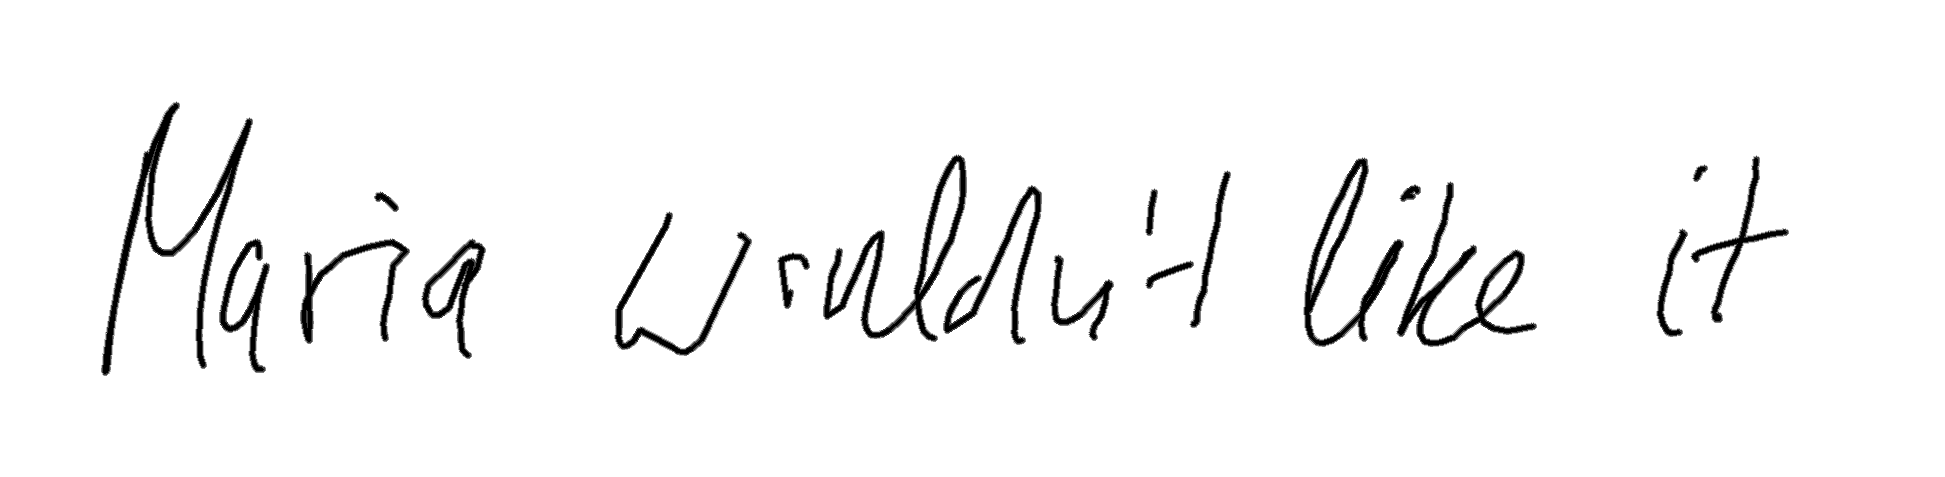 Maria wouldn't like it